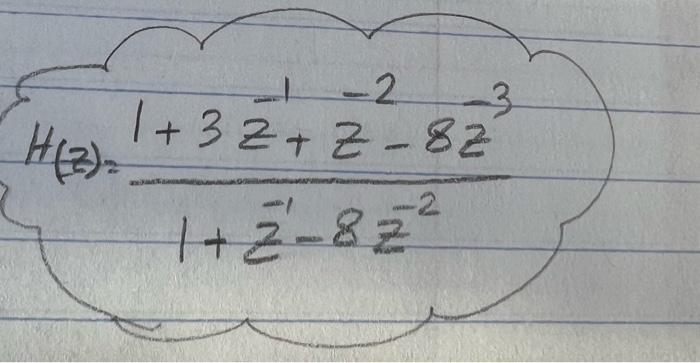 H(z)= 1 + 3z⁻¹ + z⁻² - 8z⁻³
1 + z⁻¹ - 8z⁻²